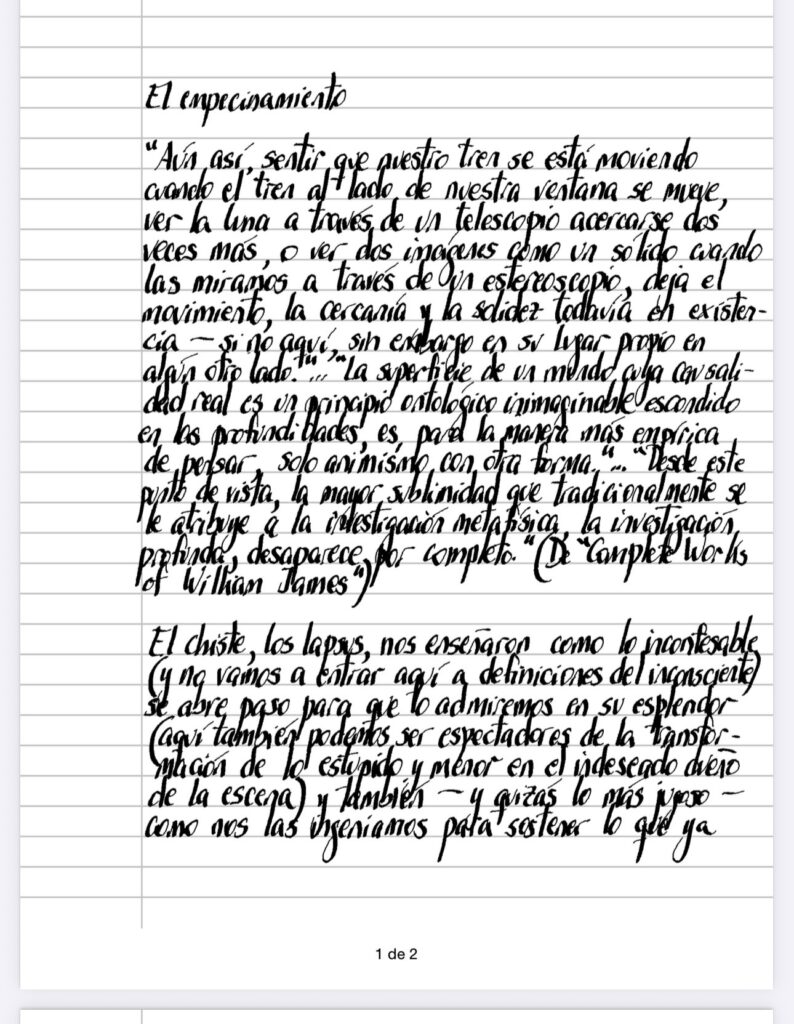 El empecinamiento
"Aún así, sentir que nuestro tren se está moviendo
cuando el tren al lado de nuestra ventana se mueve,
ver la luna a través de un telescopio acercarse dos
veces más, o ver dos imágenes como un sólido cuando
las miramos a través de un estereoscopio, deja el
movimiento, la cercanía y la solidez todavía en existen-
cia – si no aquí, sin embargo en su lugar propio en
algún otro lado."..."La superficie de un mundo cuya causali-
dad real es un principio ontológico inimaginable escondido
en las profundidades, es, para la manera más empírica
de pensar, solo animismo con otra forma."..."Desde este
punto de vista, la mayor sublimidad que tradicionalmente se
le atribuye a la investigación metafísica, la investigación
profunda, desaparece por completo." (De "Complete Works
of William James")
El chiste, los lapsus, nos enseñaron como lo inconfesable
(y no vamos a entrar aquí a definiciones del inconsciente)
se abre paso para que lo admiremos en su esplendor
(aquí también podemos ser espectadores de la transfor-
mación de lo estúpido y menor en el indeseado dueño
de la escena) y también – y quizás lo más jugoso –
como nos las ingeniamos para sostener lo que ya
1 de 2